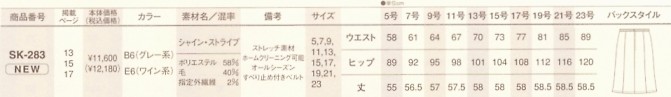 ●単位cm
商品番号 掲載ページ 本体価格(税込価格) カラー 素材名／混率 備考 サイズ 5号 7号 9号 11号 13号 15号 17号 19号 21号 23号 バックスタイル
SK-283
NEW
13
15
17
¥11,600
(¥12,180)
B6(グレー系)
E6(ワイン系)
シャイン・ストライプ
ポリエステル 58%
毛 40%
指定外繊維 2%
ストレッチ素材
ホームクリーニング可能
オールシーズン
すべり止め付きベルト
5,7,9,
11,13,
15,17,
19,21,
23
ウエスト 58 61 64 67 70 73 77 81 85 89
ヒップ 89 92 95 98 101 104 108 112 116 120
丈 55 56.5 57 57.5 58 58 58 58.5 58.5 58.5